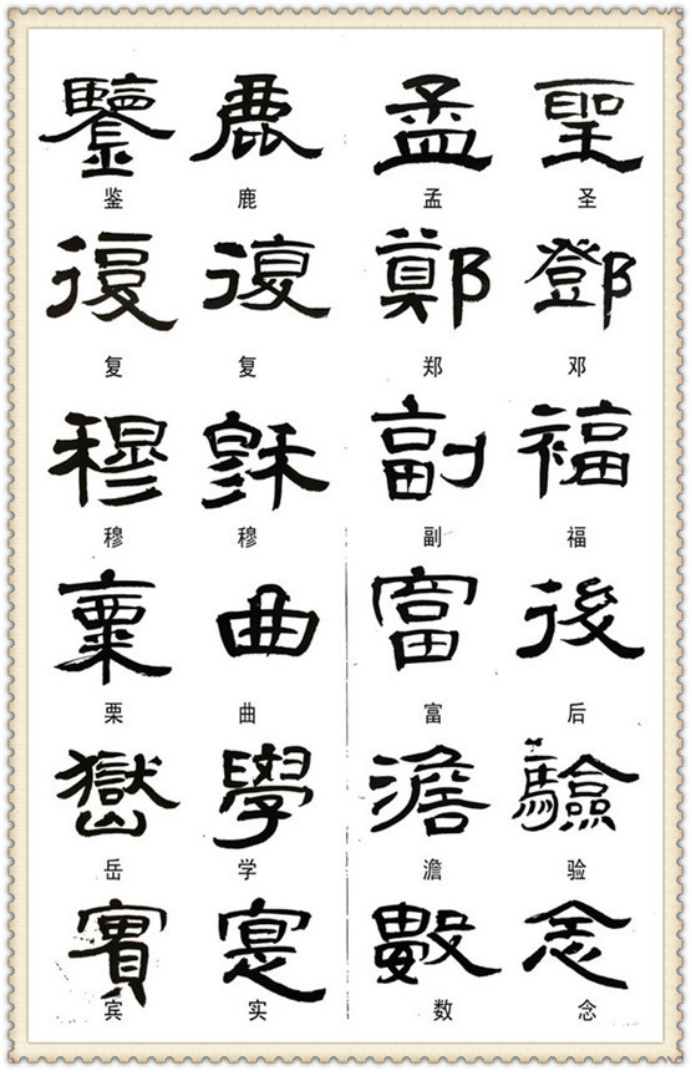 鑒 鹿 孟 聖
鉴 鹿 孟 圣
復 復 鄭 鄧
复 复 郑 邓
穆 穆 副 福
穆 穆 副 福
稟 曲 富 後
栗 曲 富 后
嶽 學 澹 驗
岳 学 澹 验
賓 寔 數 念
宾 实 数 念